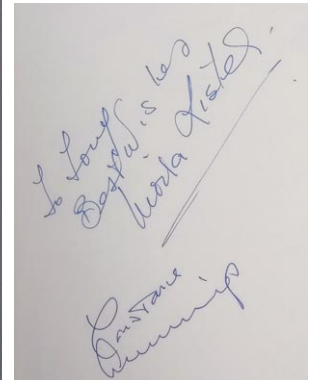 To Tony
Best Wishes
Moira Lister.
Constance
Cummings